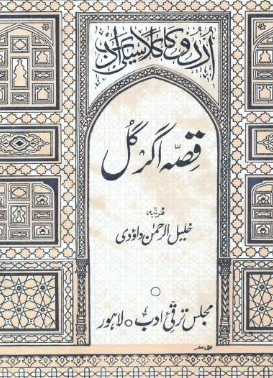 اردو کا کلاسیکی ادب
قصّہ اگر گل
مرتبہ
خلیل الرحمٰن داؤدی
مجلس ترقی ادب ○ لاہور